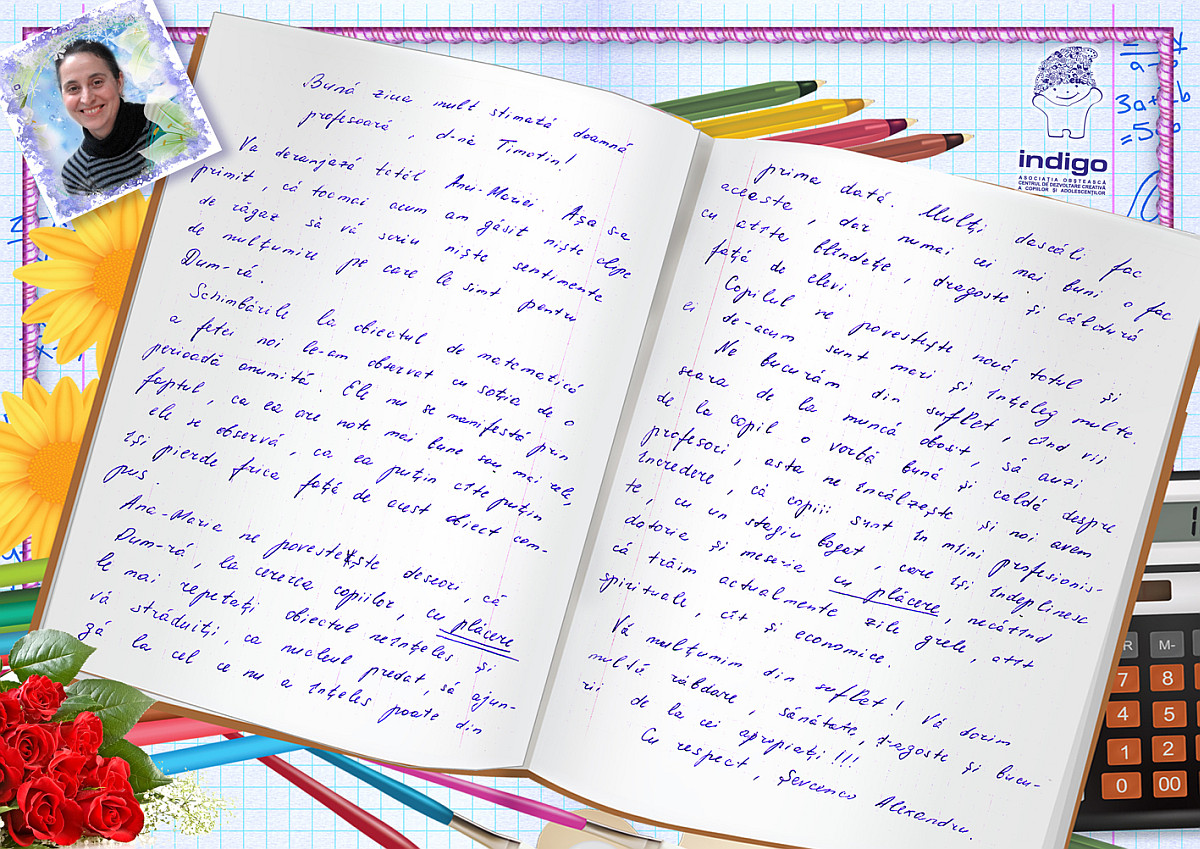 Bună ziua mult stimată doamnă
profesoară, d-nă Timotin!
Va deranjază tatăl Anei-Mariei. Așa s-a
primit, că tocmai acum am găsit niște clipe
de răgaz să vă scriu niște sentimente
de mulțumire pe care le simt pentru
Dum-ră.
Schimbările la obiectul de matematică
a fetei noi le-am observat cu soția de o
perioadă anumită. Ele nu se manifestă prin
faptul, ca ea are note mai bune sau mai rele,
ele se observă, ca ea puțin cîte puțin
își pierde frica față de acest obiect com-
pus.
Ana-Maria ne povestește deseori, că
Dum-ră, la cererea copiilor, cu plăcere
le mai repetați obiectul neînțeles și
vă străduiți, ca nucleul predat, să ajun-
gă la cel ce nu a înțeles poate din
prima dată. Mulți dascăli fac
aceste, dar numai cei mai buni o fac
cu atîta blîndețe, dragoste și căldură
față de elevi.
Copilul ne povestește nouă totul și
ei de-acum sunt mari și înțeleg multe.
Ne bucurăm din suflet, cînd vii
seara de la muncă obosit, să auzi
de la copil o vorbă bună și caldă despre
profesori, asta ne încălzește și noi avem
încredere, că copiii sunt în mîini profesionis-
te, cu un stagiu bogat, care își îndeplinesc
datoria și meseria cu plăcere, necătînd
că trăim actualmente zile grele, atît
spirituale, cît și economice.
Vă mulțumim din suflet! Vă dorim
multă răbdare, sănătate, dragoste și bucu-
rii de la cei apropiați!!!
Cu respect, Șevcenco Alexandru.
indigo
ASOCIAȚIA OBȘTEASCĂ
CENTRUL DE DEZVOLTARE CREATIVĂ
A COPIILOR ȘI ADOLESCENȚILOR
3a+
=5
R M-
7 8
4 5
1 2
0 00